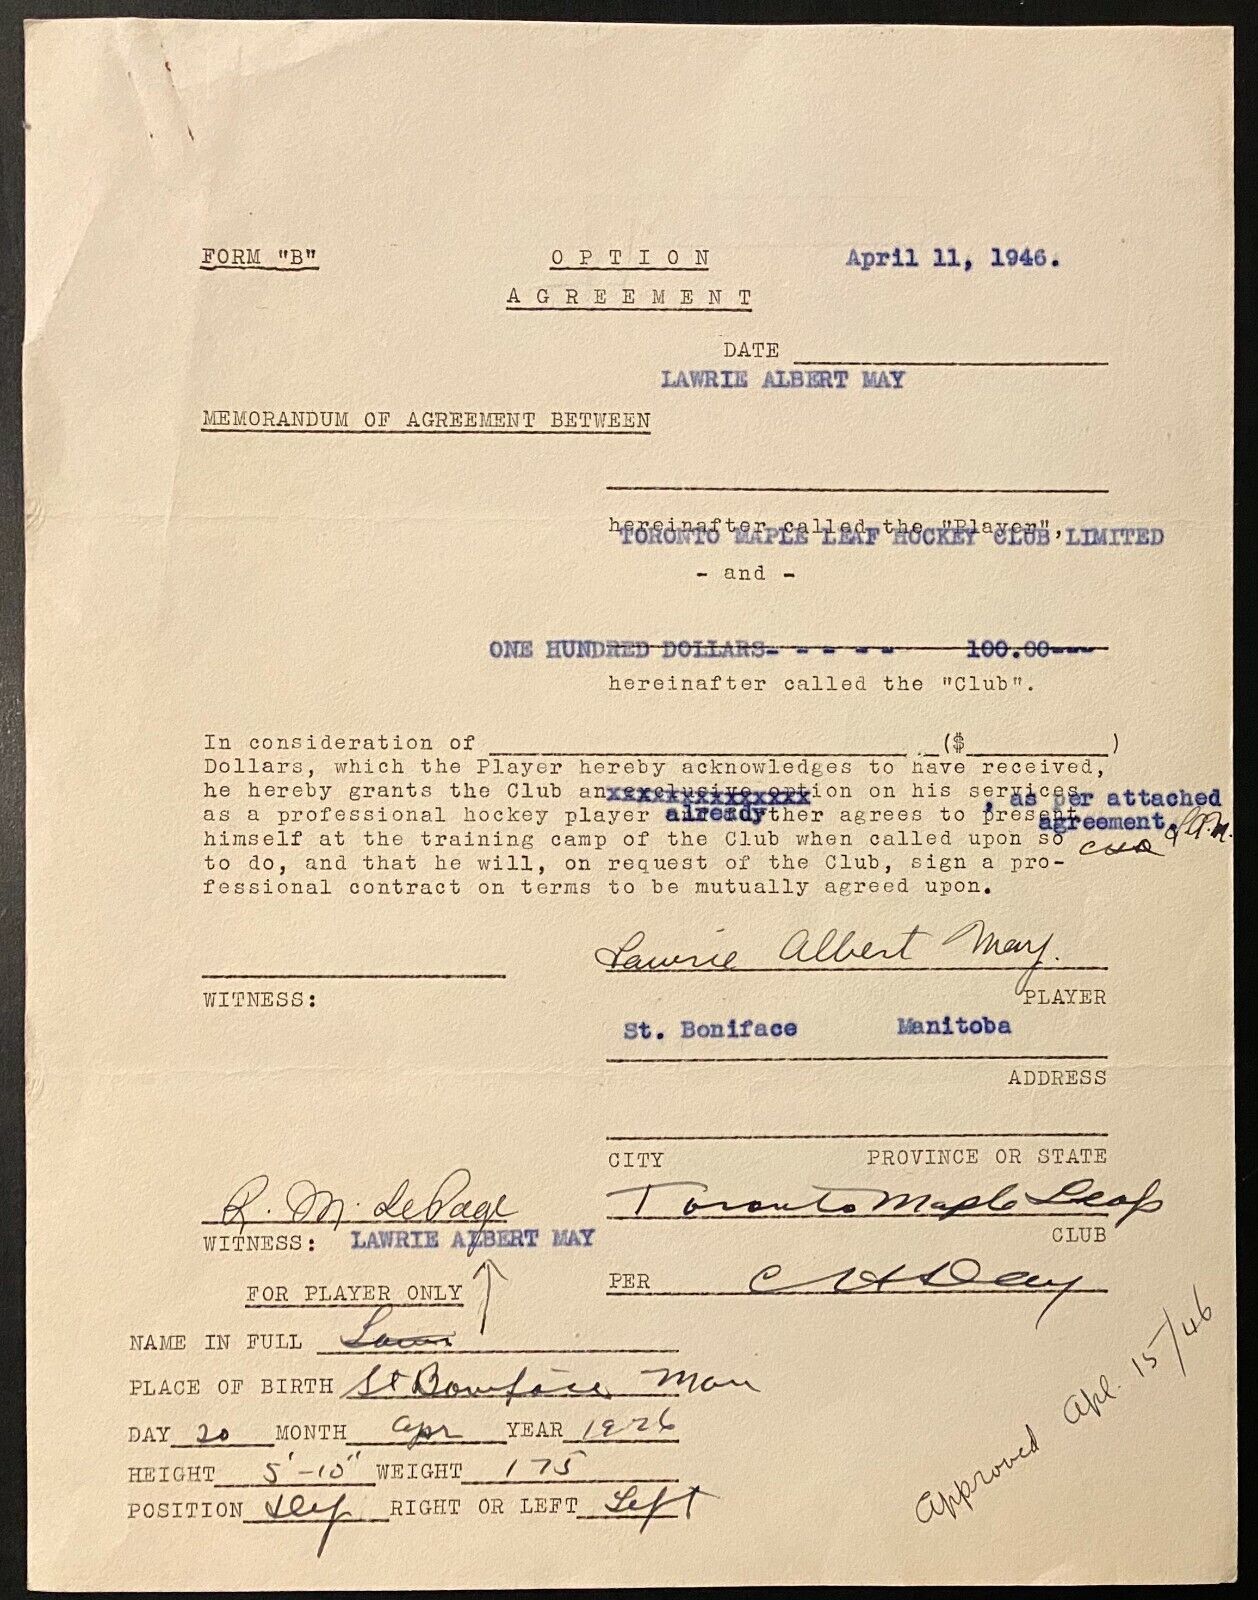 FORM "B" OPTION April 11, 1946.
AGREEMENT
DATE
LAWRIE ALBERT MAY
MEMORANDUM OF AGREEMENT BETWEEN
hereinafter called the "Player",
TORONTO MAPLE LEAF HOCKEY CLUB LIMITED
- and -
ONE HUNDRED DOLLARS- - - - - 100.00---
hereinafter called the "Club".
In consideration of ($ )
Dollars, which the Player hereby acknowledges to have received,
he hereby grants the Club an exclusive option on his services
, as per attached
as a professional hockey player already ther agrees to present
agreement. L.A.M.
himself at the training camp of the Club when called upon so CHD
to do, and that he will, on request of the Club, sign a pro-
fessional contract on terms to be mutually agreed upon.
Lawrie Albert May.
WITNESS: PLAYER
St. Boniface Manitoba
ADDRESS
CITY PROVINCE OR STATE
R. M. LePage Toronto Maple Leafs
WITNESS: LAWRIE ALBERT MAY CLUB
FOR PLAYER ONLY PER C H Day
NAME IN FULL
PLACE OF BIRTH St Boniface Man
DAY 20 MONTH Apr YEAR 1926
HEIGHT 5'-10" WEIGHT 175
POSITION Def RIGHT OR LEFT Left
Approved Apl. 15/46